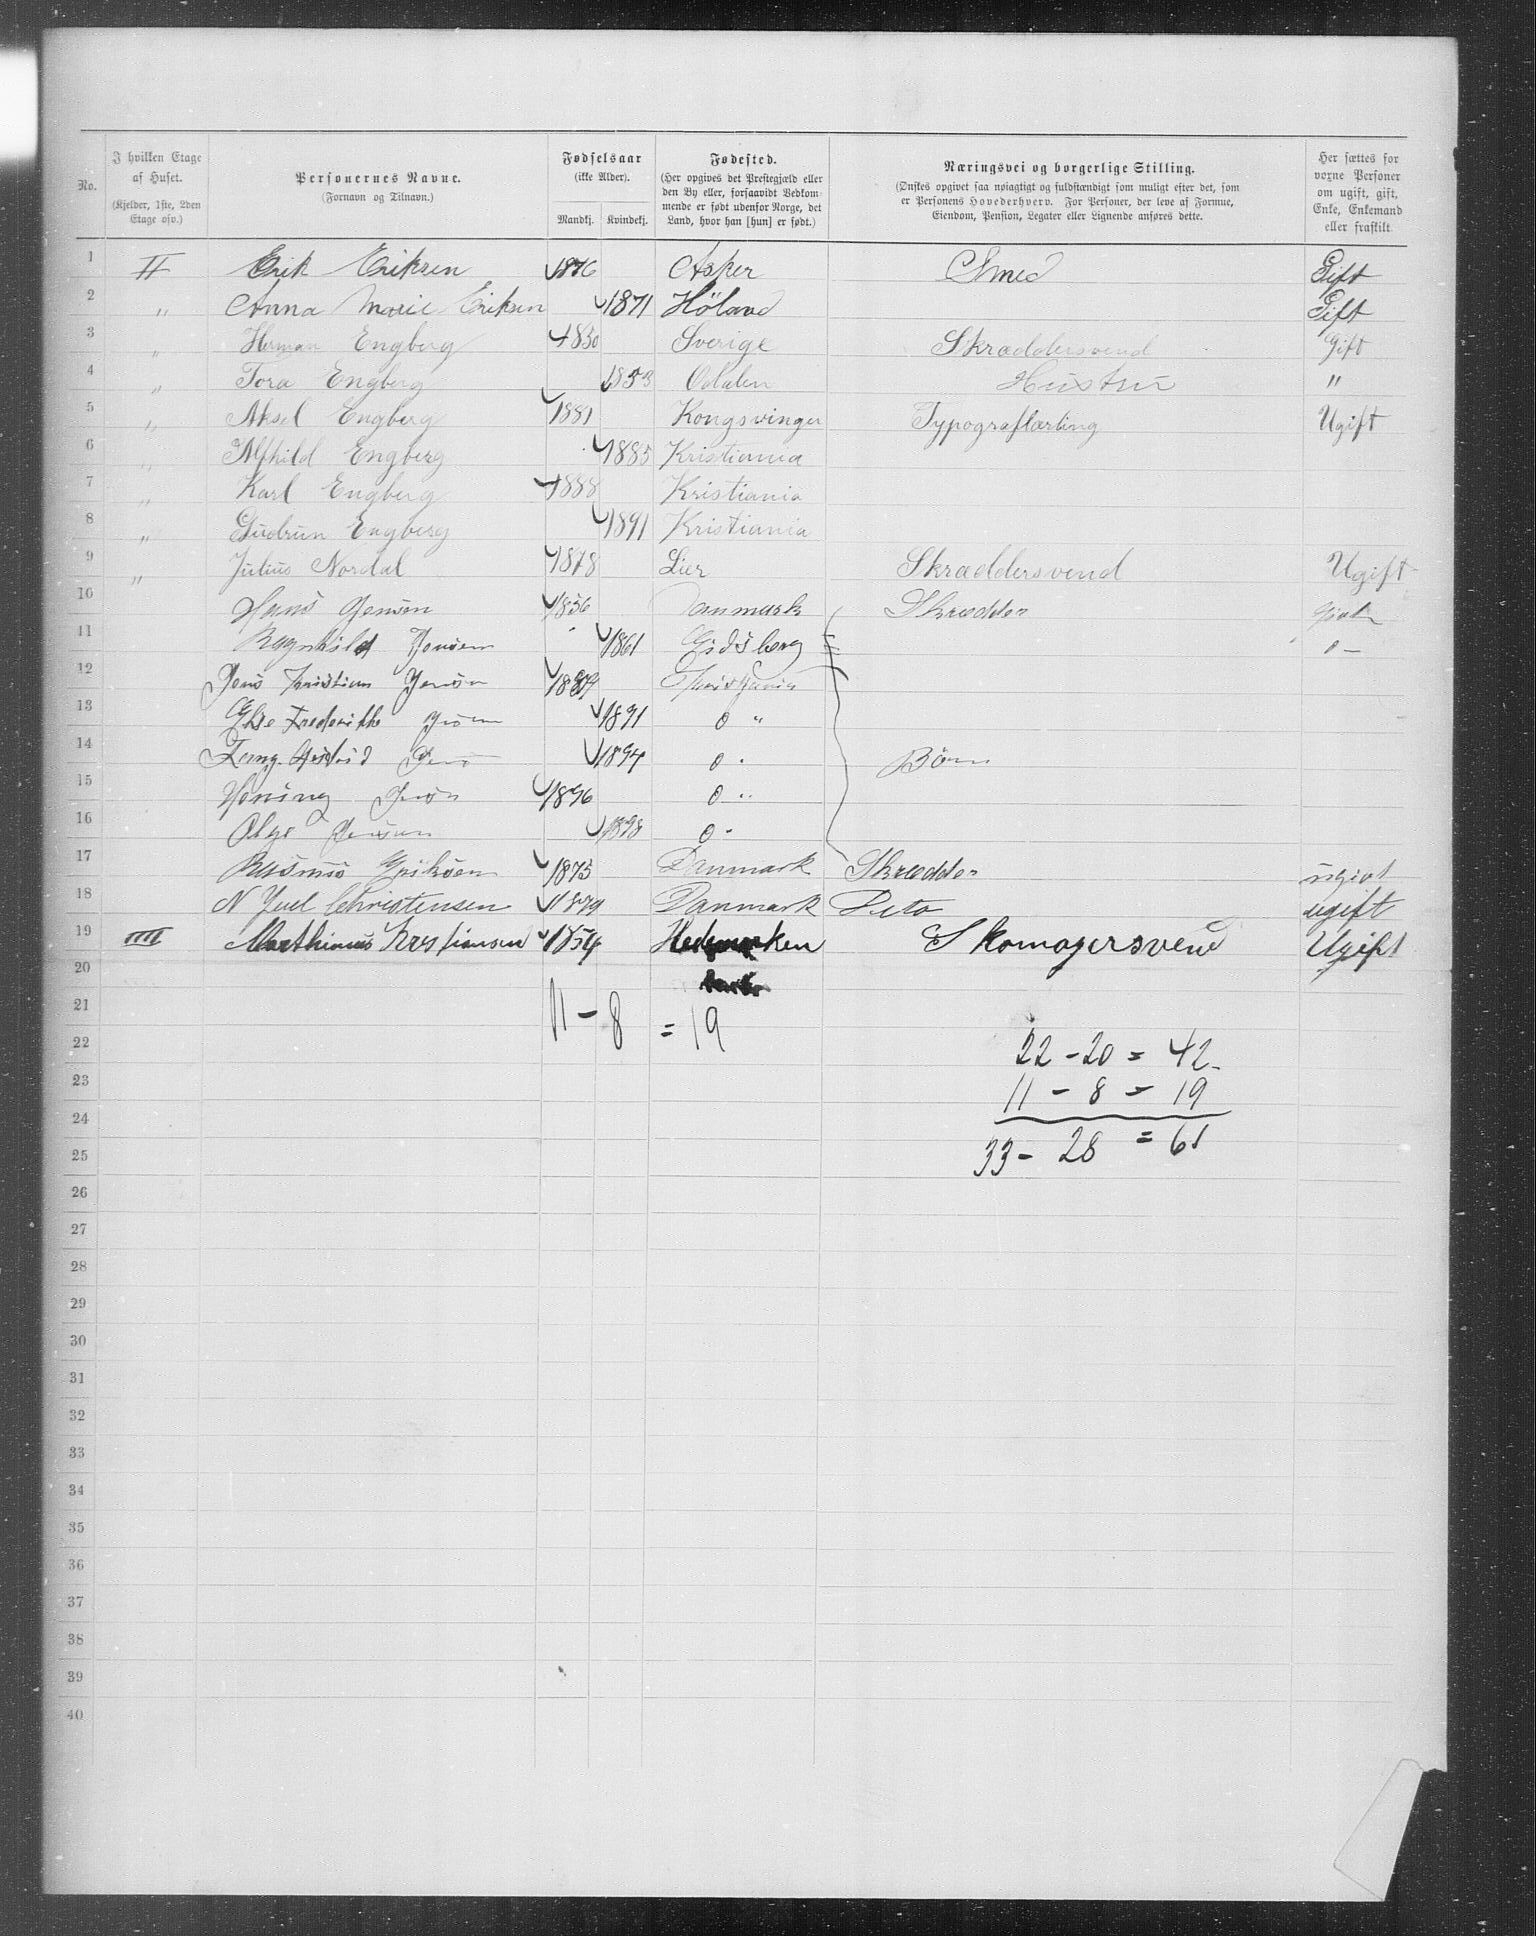 No.
I hvilken Etage af Huset. (Kjelder, 1ste, 2den Etage osv.)
Personernes Navne. (Fornavn og Tilnavn.)
Fødselsaar (ikke Alder). Mandkj. Kvindekj.
Fødested. (Her opgives det Prestegjæld eller den By eller, forsaavidt Vedkommende er født udenfor Norge, det Land, hvor han [hun] er født.)
Næringsvei og borgerlige Stilling. (Ønskes opgivet saa nøiagtigt og fuldstændigt som muligt efter det, som er Personens Hovederhverv. For Personer, der leve af Formue, Eiendom, Pension, Legater eller Lignende anføres dette.
Her sættes for voxne Personer om ugift, gift, Enke, Enkemand eller fraskilt.
1 II Erik Eriksen 1876 Asker Smed Gift
2 " Anna Marie Eriksen 1871 Høland Gift
3 " Herman Engberg 1850 Sverige Skræddersvend Gift
4 " Tora Engberg 1853 Odalen Hustru "
5 " Aksel Engberg 1881 Kongsvinger Typograflærling Ugift
6 " Alfhild Engberg 1885 Kristiania
7 " Karl Engberg 1888 Kristiania
8 " Gudrun Engberg 1891 Kristiania
9 " Julius Nordal 1878 Lier Skræddersvend Ugift
10 Hans Jensen 1856 Danmark Skrædder
11 Ragnhild Jensen 1861 Eidsberg
12 Jens Kristian Jensen Christiania
13 Else Frederikke 1891 "
14 1894 Børn
15 Henning 1896
16 Jensen 1898
17 Rasmus Eriksen 1875 Danmark Skrædder ugivt
18 N Juel Christensen 1879 Danmark Dito ugift
19 IIII Marthinus Kristiansen 1854 Hedemarken Skomagersvend Ugift
20
21 11 - 8 = 19
22 22 - 20 = 42
23 11 - 8 = 19
24
25 33 - 28 = 61
26
27
28
29
30
31
32
33
34
35
36
37
38
39
40